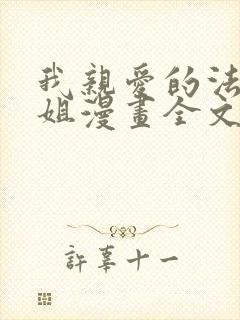 我親愛的法
姐漫畫全文
許辜十一